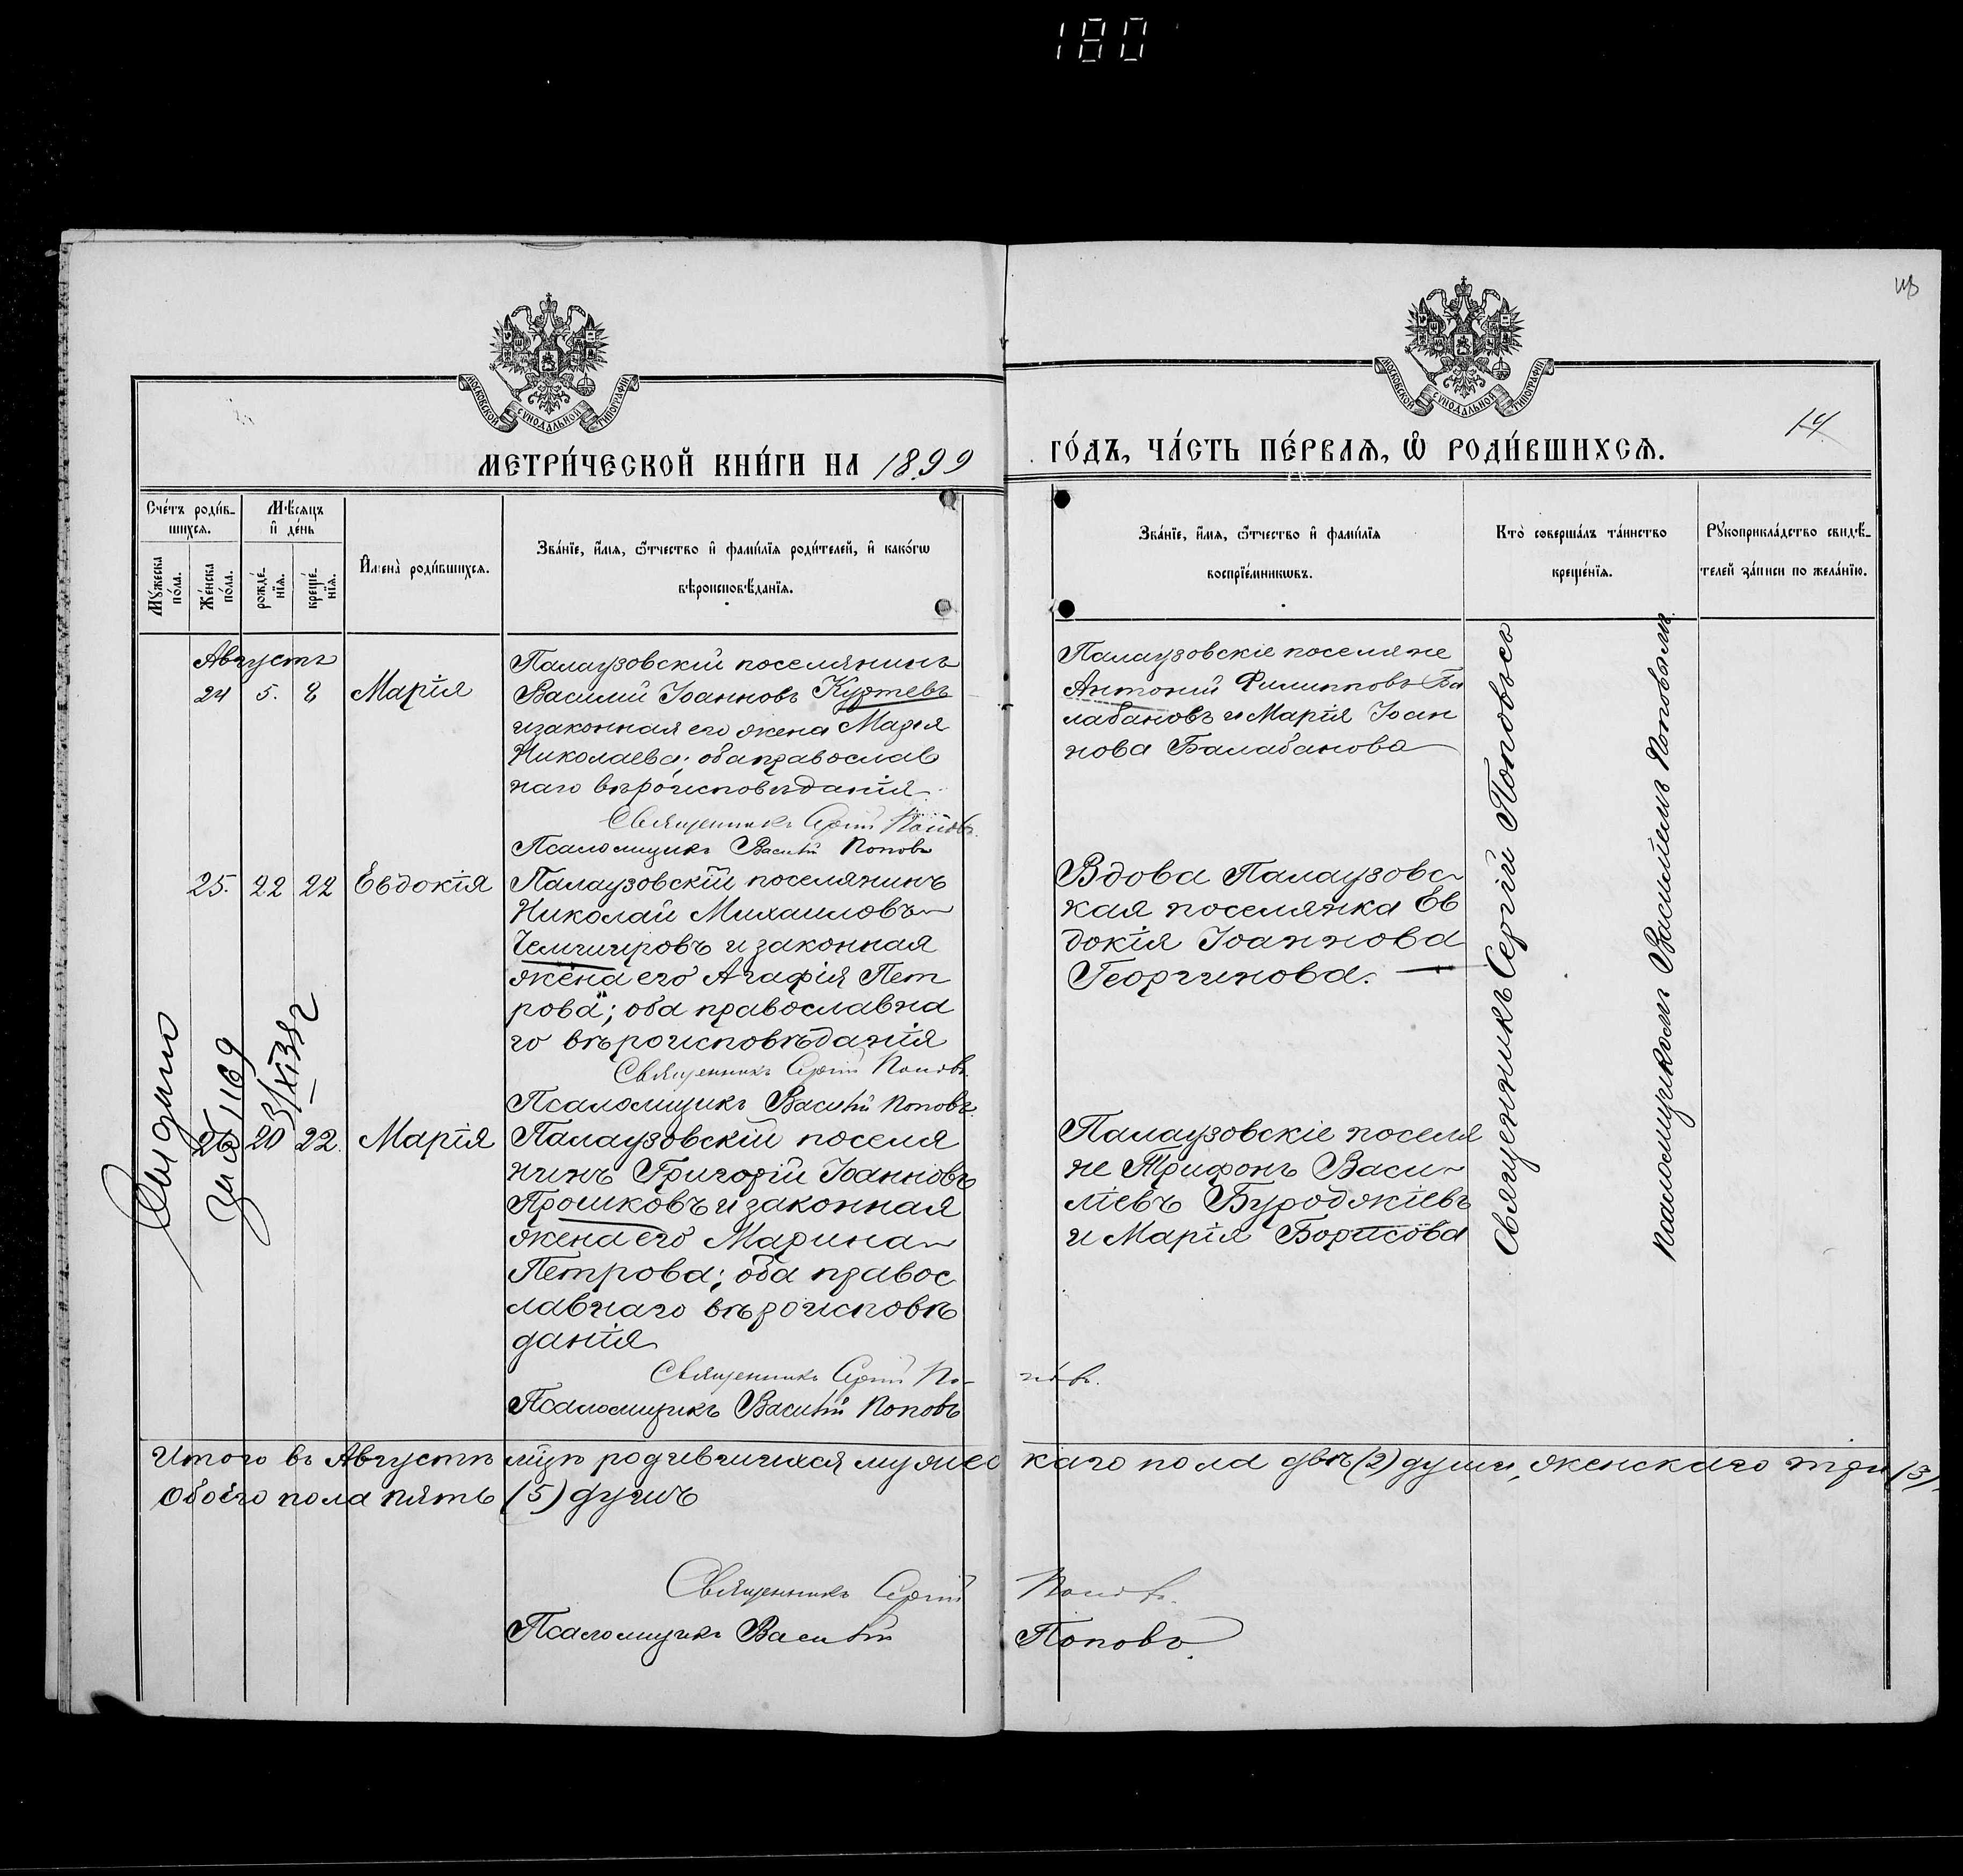 180
14
МОСКОВСКОЙ СѴНОДАЛЬНОЙ ТИПОГРАФІИ
МОСКОВСКОЙ СѴНОДАЛЬНОЙ ТИПОГРАФІИ
МЕТРИ́ЧЕСКОЙ КНИ́ГИ НА 1899
ГО́ДЪ, ЧА́СТЬ ПЕ́РВАѦ, Ѡ҆ РОДИ́ВШИХСѦ.
Сче́тъ роди́в-
шихсѧ.
Мѣ́сѧцъ
и҆ де́нь
Мꙋ́жеска по́ла.
Же́нска по́ла.
рожде́-
нїѧ.
креще́-
нїѧ.
И҆мена̀ роди́вшихсѧ.
Зва́нїе, и҆́мѧ, ѻ҆́тчество и҆ фами́лїѧ роди́телей, и҆ како́гѡ
вѣроисповѣ́данїѧ.
Зва́нїе, и҆́мѧ, ѻ҆́тчество и҆ фами́лїѧ
воспрїе́мникѡвъ.
Кто̀ соверша́лъ та́инство
креще́нїѧ.
Рꙋкоприкла́дство свидѣ́-
телей за́писи по жела́нїю.
Августъ
24 5. 8 Марія
Палаузовскій поселянинъ
Василій Іоанновъ Куртевъ
и законная его жена Марія
Николаева; оба православ
наго вѣроисповѣданія
Священникъ Сергій Поповъ.
Псаломщикъ Василій Поповъ
Палаузовскіе поселяне
Антоній Филипповъ Ба
лабановъ и Марія Іоан
нова Балабанова
25. 22 22 Евдокія
Палаузовскій поселянинъ
Николай Михаиловъ
Чемшировъ и законная
жена его Агафія Пет
рова; оба православна
го вѣроисповѣданія
Священникъ Сергій Поповъ.
Псаломщикъ Василій Поповъ
Вдова Палаузовс-
кая поселянка Ев
докія Іоаннова
Георгинова.
26 20 22. Марія
Палаузовскій поселя
нинъ Григорій Іоанновъ
Прошковъ и законная
жена его Марина
Петрова; оба правос
лавнаго вѣроисповѣ
данія
Священникъ Сергій Поповъ.
Псаломщикъ Василій Поповъ
Палаузовскіе поселя
не Трифонъ Васи-
ліевъ Буроджіевъ
и Марія Борисова
Священникъ Сергій Поповъ съ
псаломщикомъ Василіемъ Поповымъ.
Видано
1169
3/XI 38г
Итого въ Августѣ мцѣ родившихся мужескаго пола двѣ (2) души, женскаго три (3),
обоего пола пять (5) душъ
Священникъ Сергій Поповъ.
Псаломщикъ Василій Поповъ.